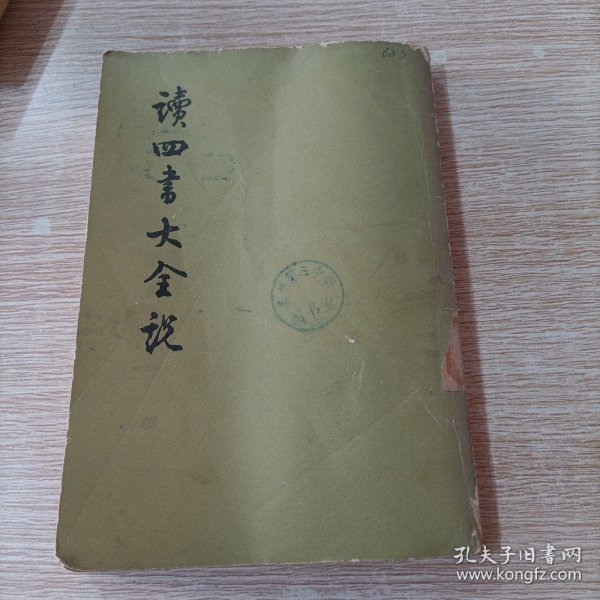 讀四書大全說
603
孔夫子旧書网
www.kongfz.com